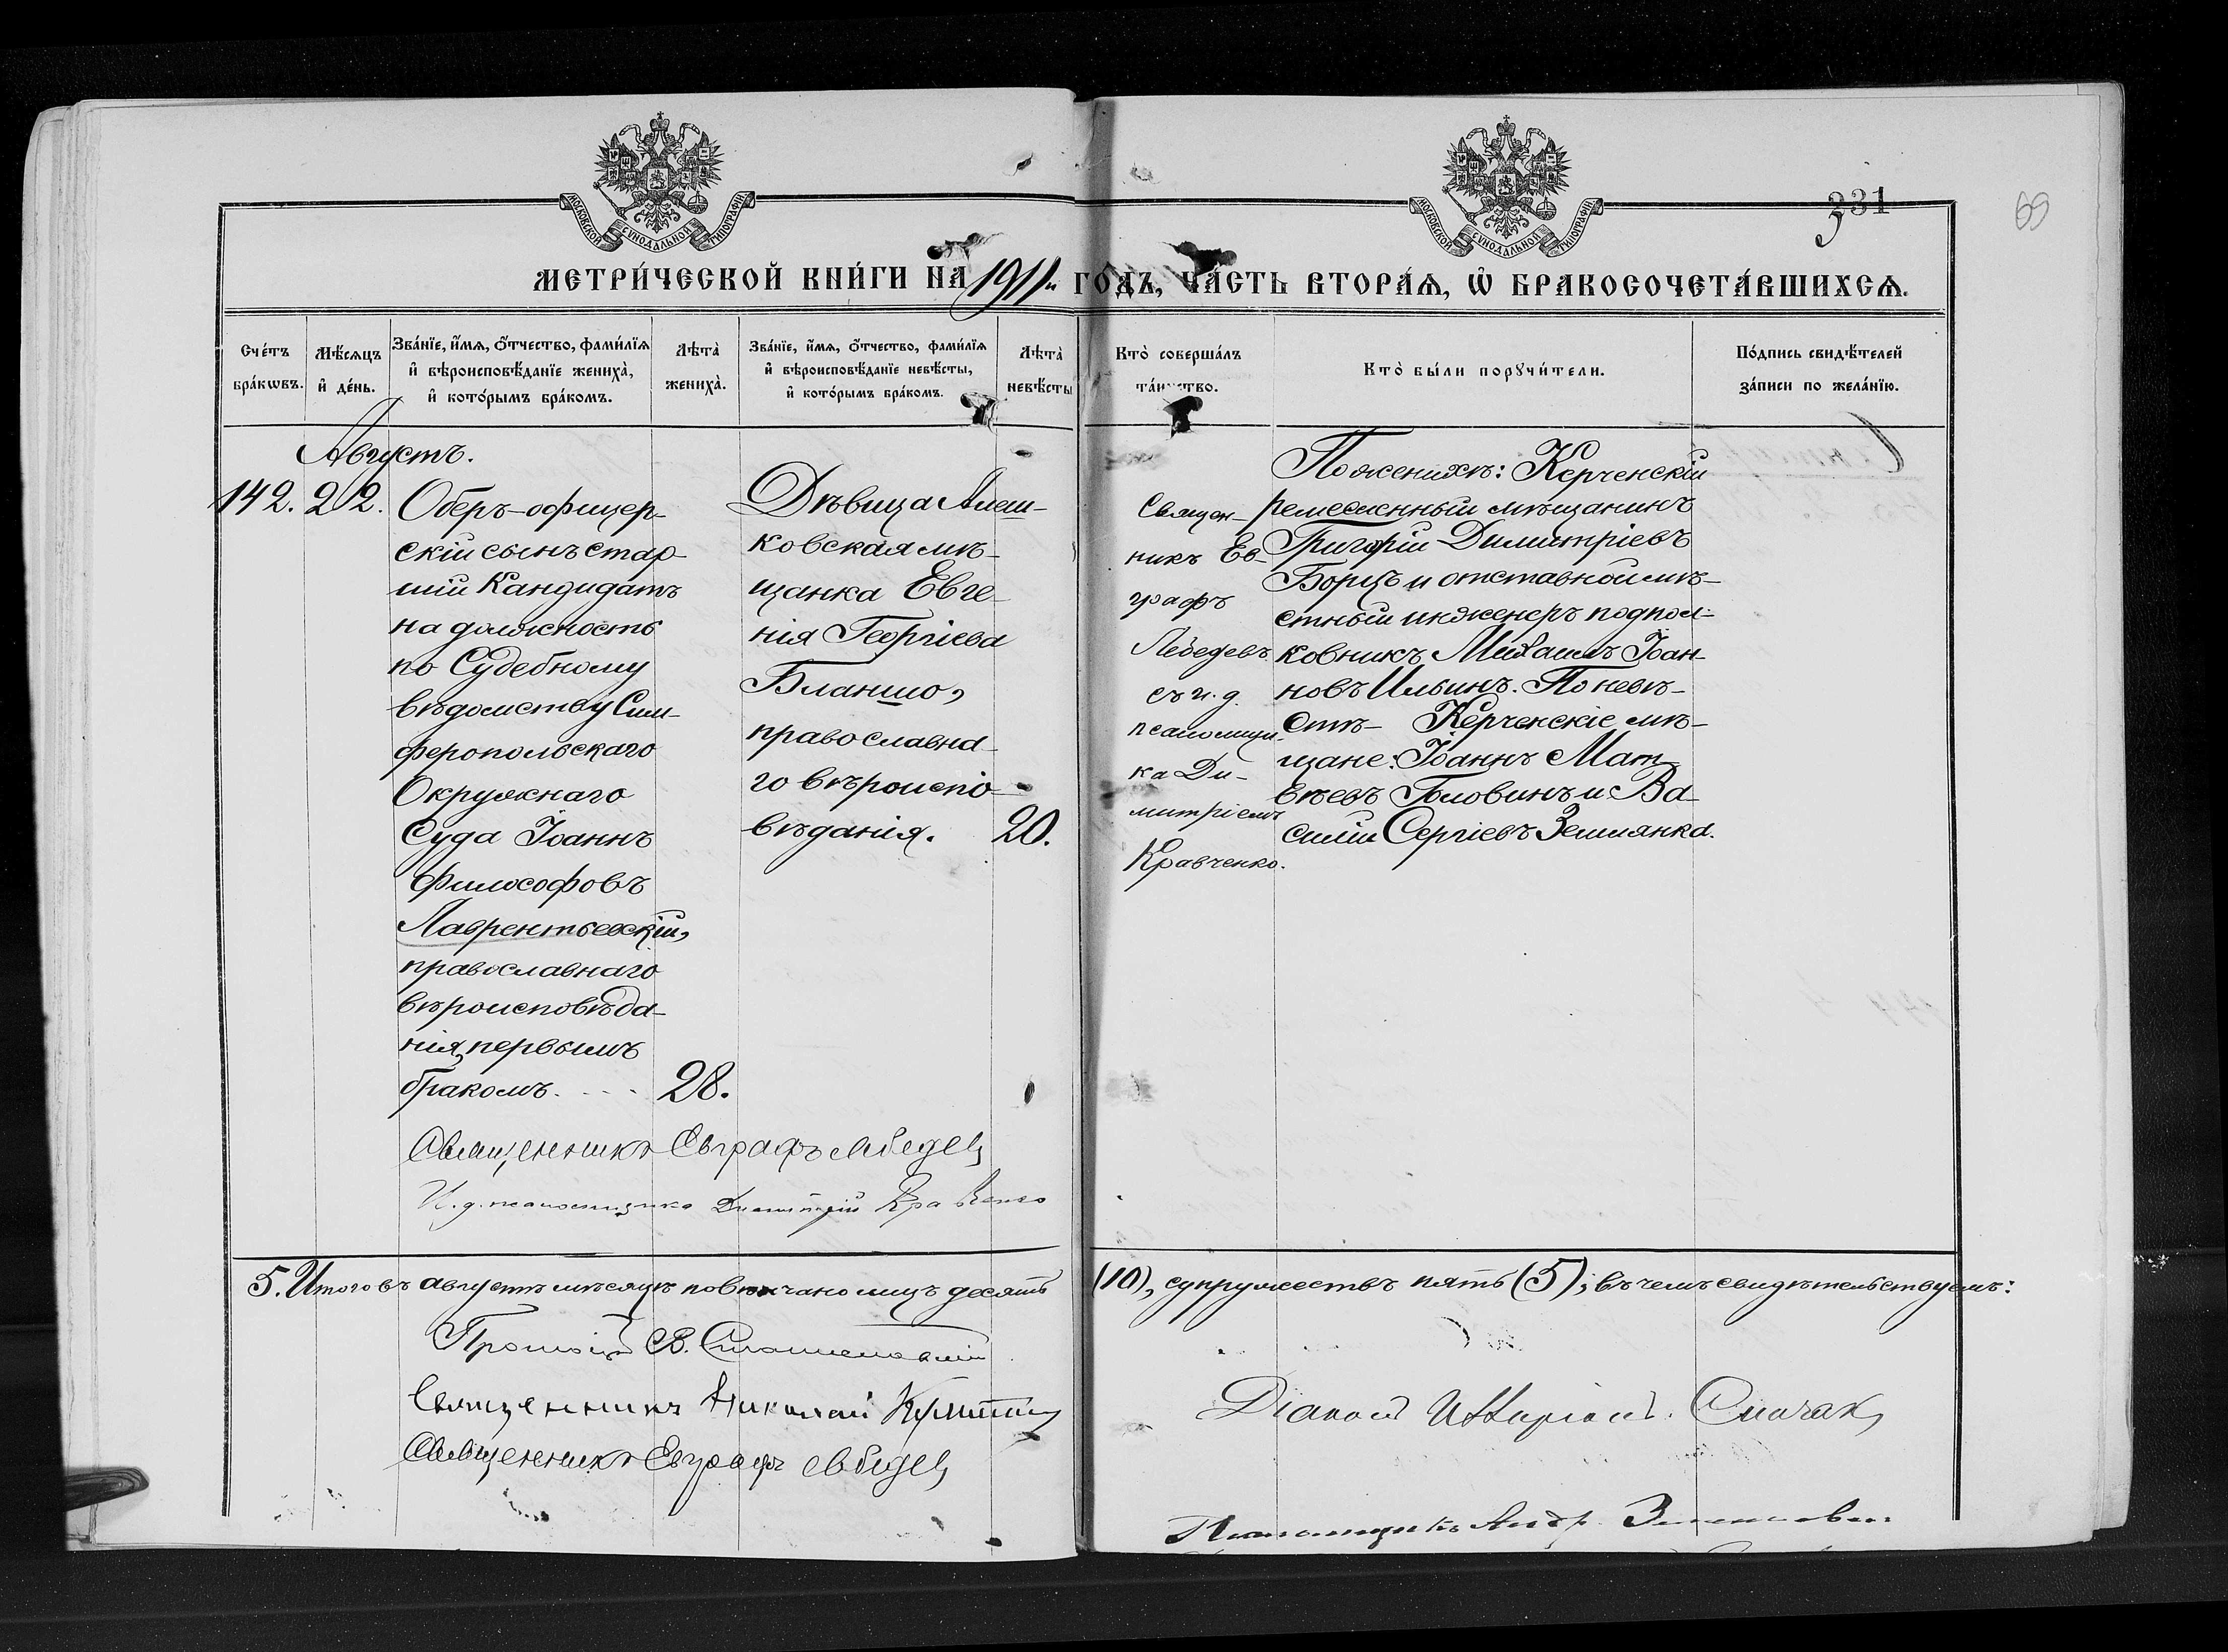 231
69
МОСКОВСКОЙ СѴНОДАЛЬНОЙ ТИПОГРАФІИ
МОСКОВСКОЙ СѴНОДАЛЬНОЙ ТИПОГРАФІИ
МЕТРИ́ЧЕСКОЙ КНИ́ГИ НА 1911й ГО́ДЪ, ЧА́СТЬ ВТОРА́Ѧ, Ѽ БРАКОСОЧЕТА́ВШИХСѦ.
Сче́тъ
бра́кѡвъ.
Мѣ́сѧцъ
и҆ де́нь.
Зва́нїе, и҆́мѧ, ѻ҆́тчество, фами́лїѧ
и҆ вѣроисповѣ́данїе жениха̀,
и҆ кото́рымъ бра́комъ.
Лѣта̀
жениха̀.
Зва́нїе, и҆́мѧ, ѻ҆́тчество, фами́лїѧ
и҆ вѣроисповѣ́данїе невѣ́сты,
и҆ кото́рымъ бра́комъ.
Лѣта̀
невѣ́сты
Кто̀ соверша́лъ
та́инство.
Кто̀ бы́ли порꙋчи́тели.
По́дпись свидѣ́телей
за́писи по жела́нїю.
Августъ.
142. 22.
Оберъ-офицер-
скій сынъ стар-
шій Кандидатъ
на должность
по Судебному
вѣдомству Сим-
феропольскаго
Окружнаго
Суда Іоаннъ
Философовъ
Лаврентьевскій,
православнаго
вѣроисповѣда-
нія, первымъ
бракомъ. - - - 28.
Дѣвица Алеш-
ковская мѣ-
щанка Евге-
нія Георгіева
Бланшо,
православна-
го вѣроиспо-
вѣданія. 20.
Священ-
никъ Ев-
графъ
Лебедевъ
съ и. д.
псаломщи-
ка Ди-
митріемъ
Кравченко.
По женихѣ: Керченскій
ремесленный мѣщанинъ
Григорій Димитріевъ
Борцъ и отставной мѣ-
стный инженеръ подпол-
ковникъ Михаилъ Іоан-
новъ Ильинъ. По невѣ-
стѣ - Керченскіе мѣ-
щане: Іоаннъ Мат-
вѣевъ Головинъ и Ва-
силій Сергіевъ Землянка.
Священникъ Евграфъ Лебедевъ
И. д. псаломщика Димитрій Кравченко
5. Итого въ августѣ мѣсяцѣ повѣнчано лицъ десять (10), супружествъ пять (5); въ чемъ свидѣтельствуемъ:
Священникъ Николай
Священникъ Евграфъ Лебедевъ
Діаконъ
Псаломщикъ Андр.